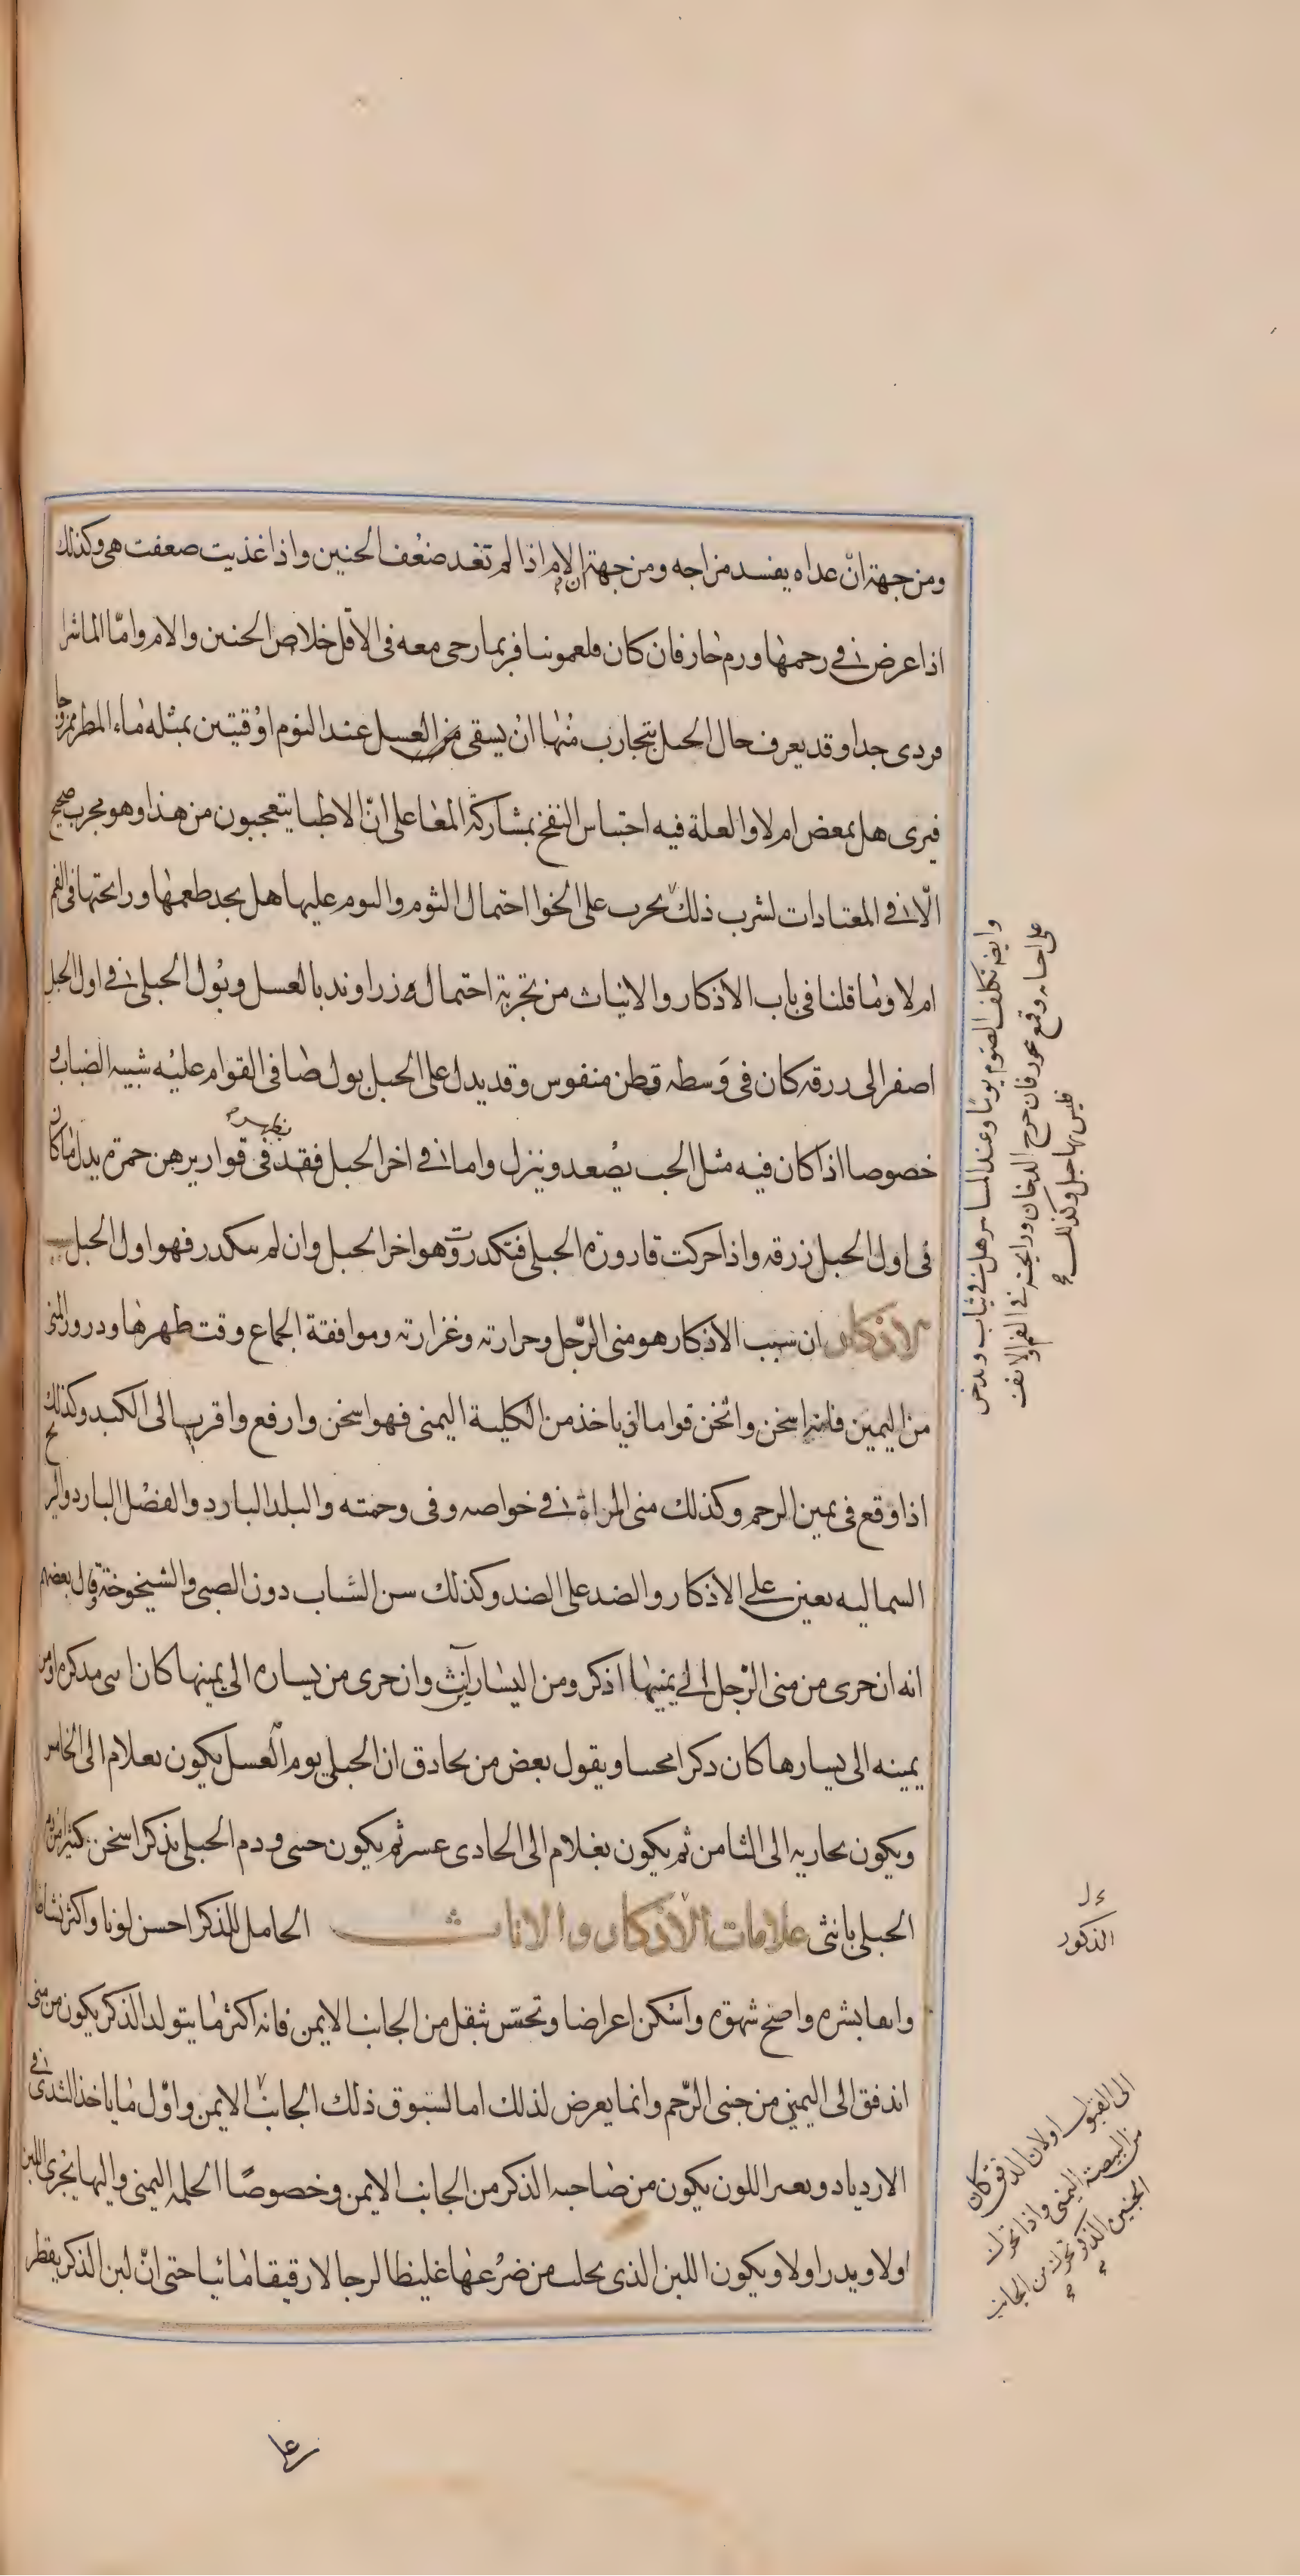 ومن جهة انّ عداه يفسد مزاجه ومن جهة الام اذا لم تغد ضعُف الحنين واذا غذيت صعفت هى وكذلك
اذا عرض فى رحمها ورم حار فان كان فلعمونيا فربما رحى معه فى الاقل خلاص الحنين والام وامّا الماشرا
فردى جدا وقد يعرف حال الحبل بتجارب منها ان يسقى من العسل عند النوم اوقيتين بمثله ماء المطر ممزوجا
فيرى هل يمغص ام لا والعلة فيه احتباس النفخ بمشاركة المعا على انّ الاطبا يتعجبون من هذا وهو مجرب صحيح
الّا فى المعتادات لشرب ذلك يجرب على الخوا احتمال الثوم والنوم عليها هل يجد طعمها ورايحتها فى الفم
ام لا وما قلنا فى باب الاذكار والايناث من تجربة احتمال زراوند بالعسل وبول الحبلى فى اول الحبل
اصفر الى زرقه كان فى وسطه قطن منفوس وقد يدل على الحبل بول صافى القوام عليه شبيه الضباب و
خصوصا اذا كان فيه مثل الحب يصعد وينزل واما فى اخر الحبل فقد فى قواريرهن حمرة يدل ما كان
فى اول الحبل زرقه واذا حركت قارورة الحبلى فتكدرت وهو اخر الحبل وان لم سكدر فهو اول الحبل
الاذكار ان سبب الاذكار هو منى الرّجل وحرارته وغزارته وموافقة الجماع وقت طهرها ودرور المنى
من اليمين فانه اسخن واثخن قواما اذ ياخذ من الكلية اليمنى فهو اسخن وارفع واقرب الى الكبد وكذلك
اذا وقع فى يمين الرحم وكذلك منى المراة فى خواصه وفى وجهته والبلد البارد والفصل البارد والر
السماليه يعين على الاذكار والضد على الضد وكذلك سن الشاب دون الصبى والشيخوخة وقال بعضهم
انه ان جرى من منى الرّجل الى يمينها اذكر ومن اليسار آنث وان جرى من يساره الى يمينها كان انثى مذكرة او من
يمينه الى يسارها كان ذكرا مخنسا ويقول بعض من يحادق ان الحبلى يوم الغسل يكون بغلام الى الخامس
ويكون بجاريه الى الثامن ثم يكون بغلام الى الحادى عسر ثم يكون خنثى ودم الحبلى بذكر اسخن كثيرا من دم
الحبلى بانثى علامات الاذكار والاناث الحامل للذكر احسن لونا واكثر نشاطا
وانقا بشره واصح شهوة واسكن اعراضا وتحسّ بثقل من الجانب الايمن فانه اكثر ما يتولد الذكر يكون من منى
اندفق الى اليمنى من جنبى الرّحم وانما يعرض لذلك اما لسبوق ذلك الجانب الايمن واوّل ما ياخذ الثدى فى
الازدياد وبعير اللون يكون من صاحبه الذكر من الجانب الايمن وخصوصًا الحلمه اليمنى واليها يجرى اللبن
اولا ويدر اولا ويكون اللبن الذى يحلب من ضرعها غليظا لزجا لا رقيقا مائيا حتى انّ لبن الذكر يقطر
وايضا تكلف الصوم يوما وعند المسا
على اجانه وقمع بخور فان خرج الدخان ورايحته فى الفم والانف
فليس بها حبل وكذلك
الذكور
الى القبول اولان الدفق كان
من البيضة اليمنى واذا تحرك
الجنين الذكر تحرك من الجانب